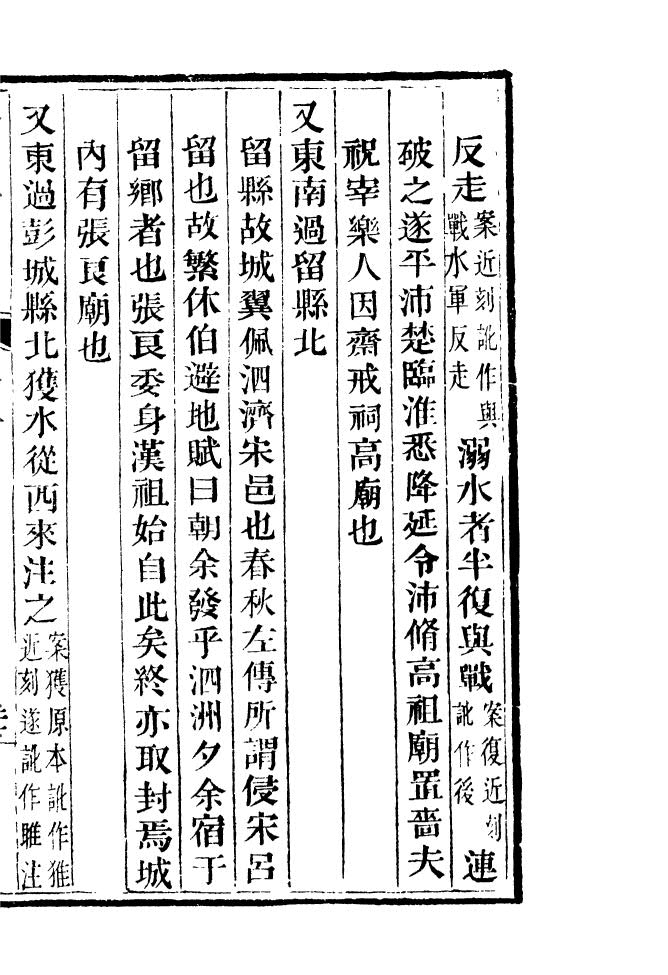 反走案近刻訛作與戰水軍反走溺水者半復與戰案復近刻訛作後連
破之遂平沛楚臨淮悉降延令沛脩高祖廟置嗇夫
祝宰樂人因齋戒祠高廟也
又東南過留縣北
留縣故城翼佩泗濟宋邑也春秋左傳所謂侵宋呂
留也故繁休伯避地賦曰朝余發乎泗洲夕余宿于
留鄉者也張良委身漢祖始自此矣終亦取封焉城
內有張良廟也
又東過彭城縣北獲水從西來注之案獲原本訛作獾近刻遂訛作雎注